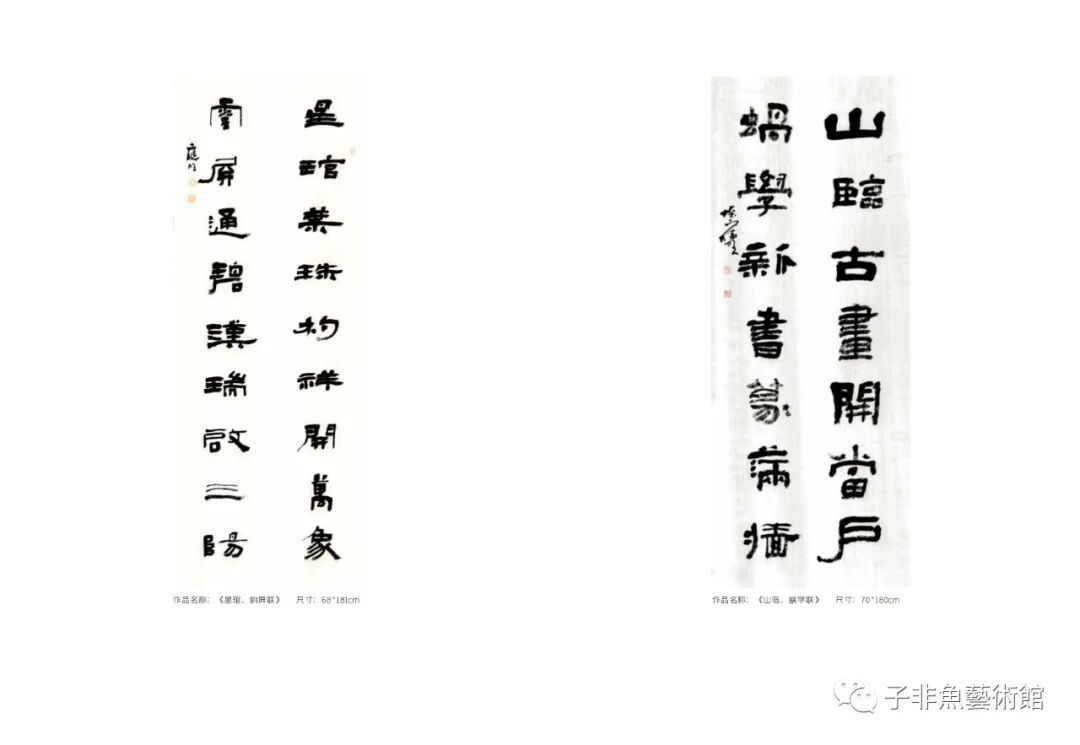 星琯葉珠杓祥開萬象
雲屏通碧漢瑞啟三陽
作品名称：《星琯、韵屏联》 尺寸：68*181cm
山臨古畫開當戶
蝸學新書篆滿牆
作品名称：《山临、蜗学联》 尺寸：70*180cm
子非魚藝術館